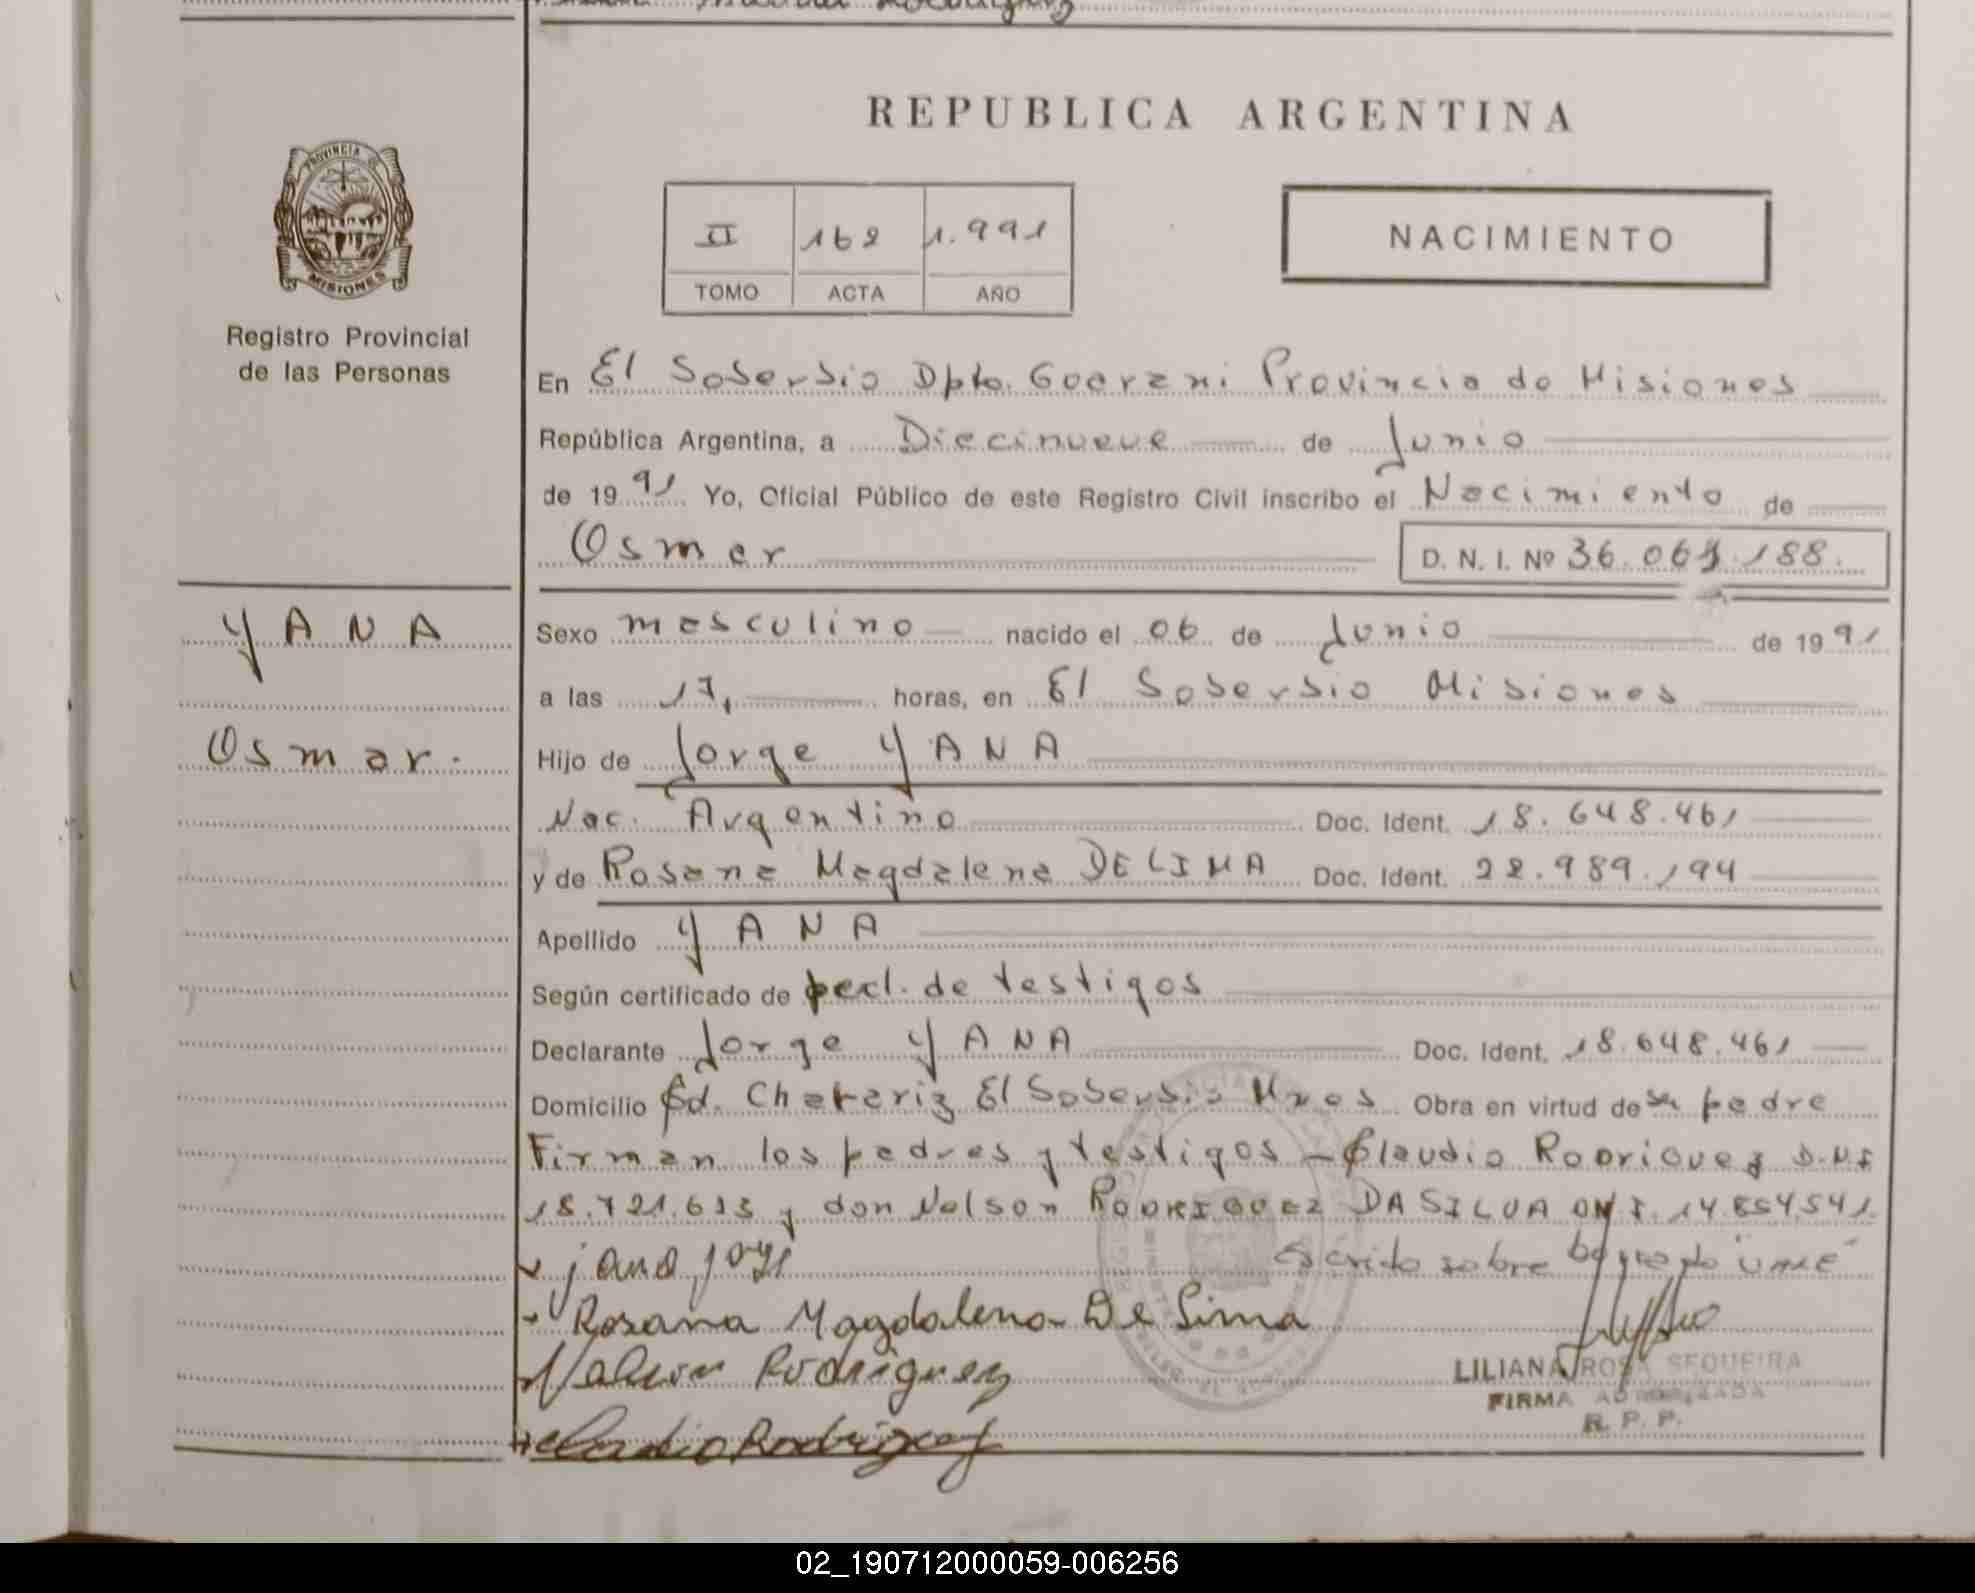 REPUBLICA ARGENTINA
PROVINCIA DE
MISIONES
Registro Provincial
de las Personas
II 162 1.991
TOMO ACTA AÑO
NACIMIENTO
En El Soberbio Dpto. Guarani Provincia de Misiones
República Argentina, a Diecinueve de Junio
de 19 91 Yo, Oficial Público de este Registro Civil inscribo el Nacimiento de
Osmar D. N. I. Nº 36.061.188.
YANA
Osmar.
Sexo masculino nacido el 06 de Junio de 19 91
a las 17, horas, en El Soberbio Misiones
Hijo de Jorge YANA
Nac. Argentino Doc. Ident. 18.648.461
y de Rosana Magdalena DE LIMA Doc. Ident. 22.989.194
Apellido YANA
Según certificado de decl. de testigos
Declarante Jorge YANA Doc. Ident. 18.648.461
Domicilio Cd. Chafariz El Soberbio Mnes Obra en virtud de su padre
Firman los padres y testigos - Claudio RODRIGUEZ D.N.I
18.721.613 y don Nelson RODRIGUEZ DA SILVA DNI. 14.854.541.
yana jorge
Escrito sobre borrado "
Rosana Magdalena De Lima
Nelson Rodriguez
LILIANA ROSA SEQUEIRA
FIRMA AUTORIZADA
R. P. P.
Claudio Rodriguez
02_190712000059-006256